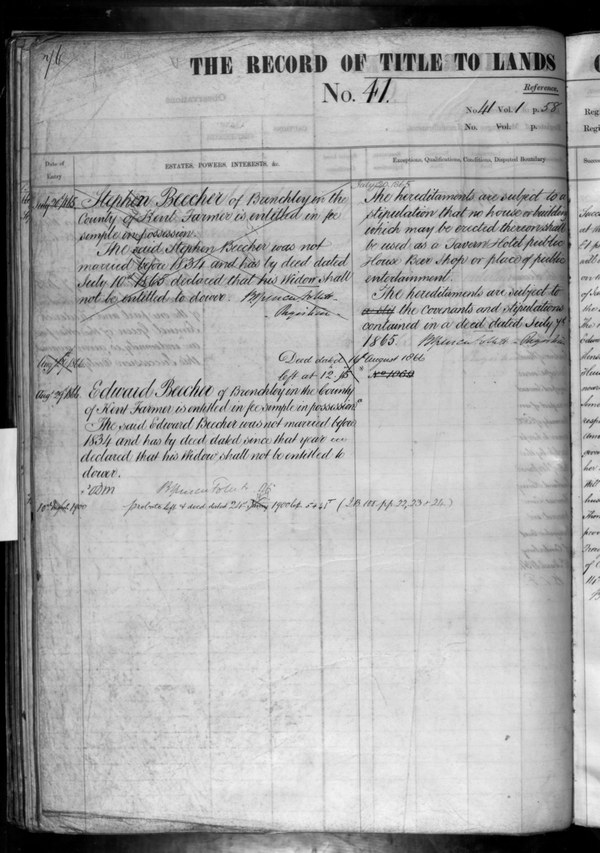 76
THE RECORD OF TITLE TO LANDS
No. 41.
Reference.
No. 41 Vol. 1 p. 58
No. Vol. p.
Date of
Entry
ESTATES, POWERS, INTERESTS, &c.
Exceptions, Qualifications, Conditions, Disputed Boundary
July 20 1865
July 20 1865 Stephen Beecher of Brenchley in the
County of Kent Farmer is entitled in fee
simple in possession.
The said Stephen Beecher was not
married before 1834 and has by deed dated
July 10th 1865 declared that his Widow shall
not be entitled to dower.
Registrar
The hereditaments are subject to a
stipulation that no house or building
which may be erected thereon shall
be used as a Tavern Hotel public
House Beer Shop or place of public
entertainment.
The hereditaments are subject to
the covenants and stipulations
contained in a deed dated July
1865. Registrar
Deed dated 14th August 1866
left at 12.45 No 1069
Edward Beecher of Brenchley in the County
of Kent Farmer is entitled in fee simple in possession
The said Edward Beecher was not married before
1834 and has by deed dated since that year
declared that his Widow shall not be entitled to
dower.
1900 probate left & deed dated 1900 (pp. 22, 23 & 24)